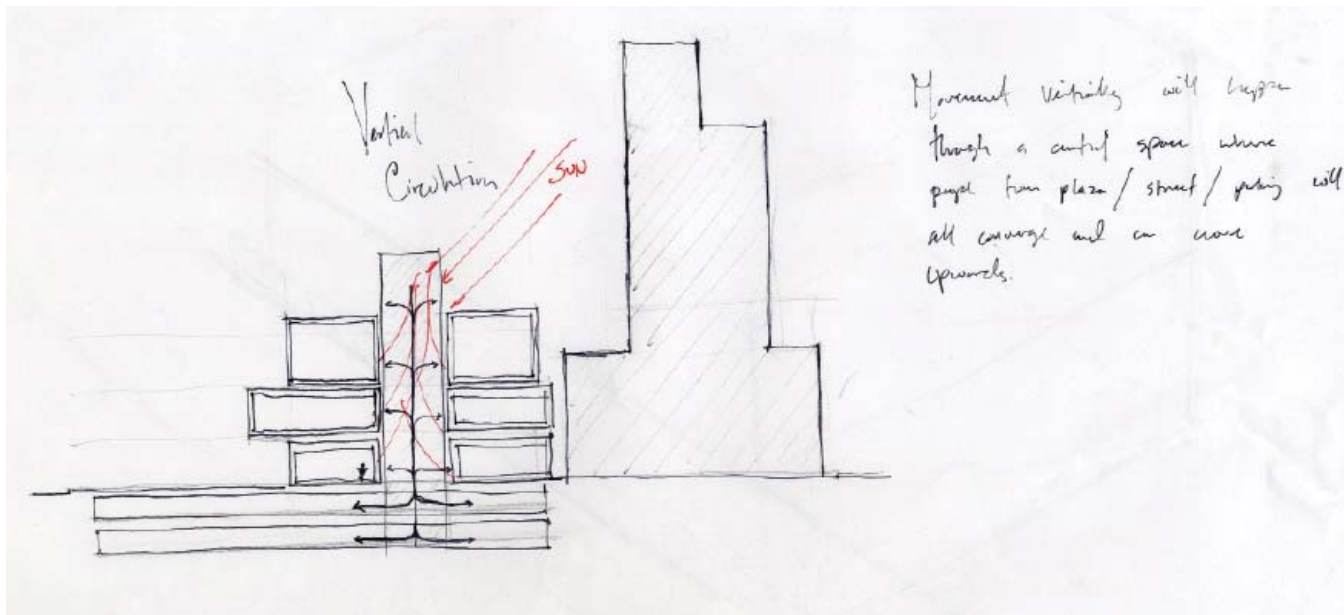 Vertical
Circulation
SUN
Movement vertically will happen
through a central space where
people from plaza / street / parking will
all converge and can move
upwards.